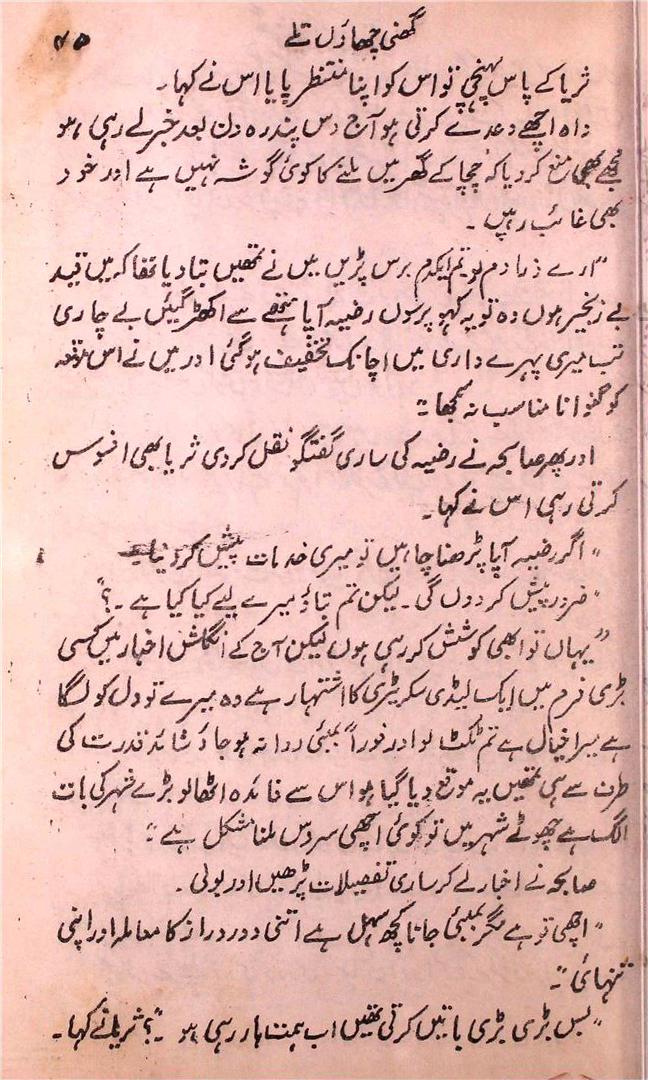 گھنی چھاؤں تلے
۴۵
ثریا کے پاس پہنچی تو اس کو اپنا منتظر پایا اس نے کہا۔
واہ اچھے وعدے کرتی ہو آج دس پندرہ دن بعد خبر لے رہی ہو
مجھے بھی منع کر دیا کہ چچا کے گھر میں ملنے کا کوئی گوشہ نہیں ہے اور خود
بھی غائب رہیں۔
"ارے ذرا دم لو تم ایکدم برس پڑیں میں نے تمھیں بتا دیا تھا کہ میں قید
بے زنجیر ہوں وہ تو یہ کہو پرسوں رضیہ آپا ہتھے سے اکھڑ گیئں بے چاری
تب میری پہرے داری میں اچانک تخفیف ہو گئی اور میں نے اس موقعہ
کو گنوانا مناسب نہ سمجھا"۔
اور پھر صابحہ نے رضیہ کی ساری گفتگو نقل کر دی ثریا بھی افسوس
کرتی رہی اس نے کہا۔
"اگر رضیہ آپا پڑھنا چاہیں تو میری خدمات پیش کر دینا۔
"ضرور پیش کر دوں گی۔ لیکن تم بتاؤ میرے لیے کیا کیا ہے۔؟"
"یہاں تو ابھی کوشش کر رہی ہوں لیکن آج کے انگلش اخبار میں کسی
بڑی فرم میں ایک لیڈی سکریٹری کا اشتہار ہے وہ میرے تو دل کو لگا
ہے میرا خیال ہے تم ٹکٹ لو اور فوراً بمبئی روانہ ہو جاؤ شائد قدرت کی
طرف سے ہی تمھیں یہ موقع دیا گیا ہو اس سے فائدہ اٹھالو بڑے شہر کی بات
الگ ہے چھوٹے شہر میں تو کوئی اچھی سروس ملنا مشکل ہے"۔
صابحہ نے اخبار لے کر ساری تفصیلات پڑھیں اور بولی۔
"اچھی تو ہے مگر بمبئی جانا کچھ سہل ہے اتنی دور دراز کا معاملہ اور اپنی
تنہائی"۔
"بس بڑی بڑی باتیں کرتی تھیں اب ہمت ہار رہی ہو۔؟" ثریا نے کہا۔